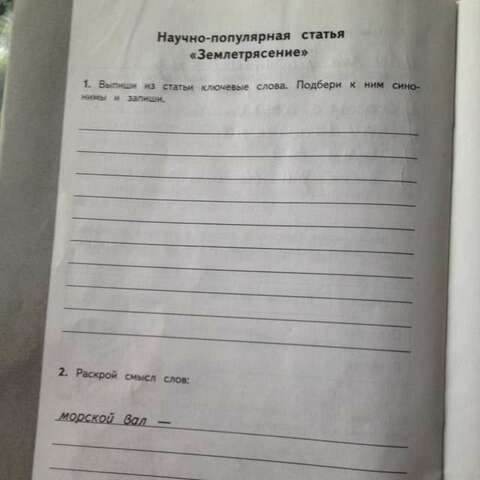 Научно-популярная статья
«Землетрясение»
1. Выпиши из статьи ключевые слова. Подбери к ним сино-
нимы и запиши.
2. Раскрой смысл слов:
морской вал —